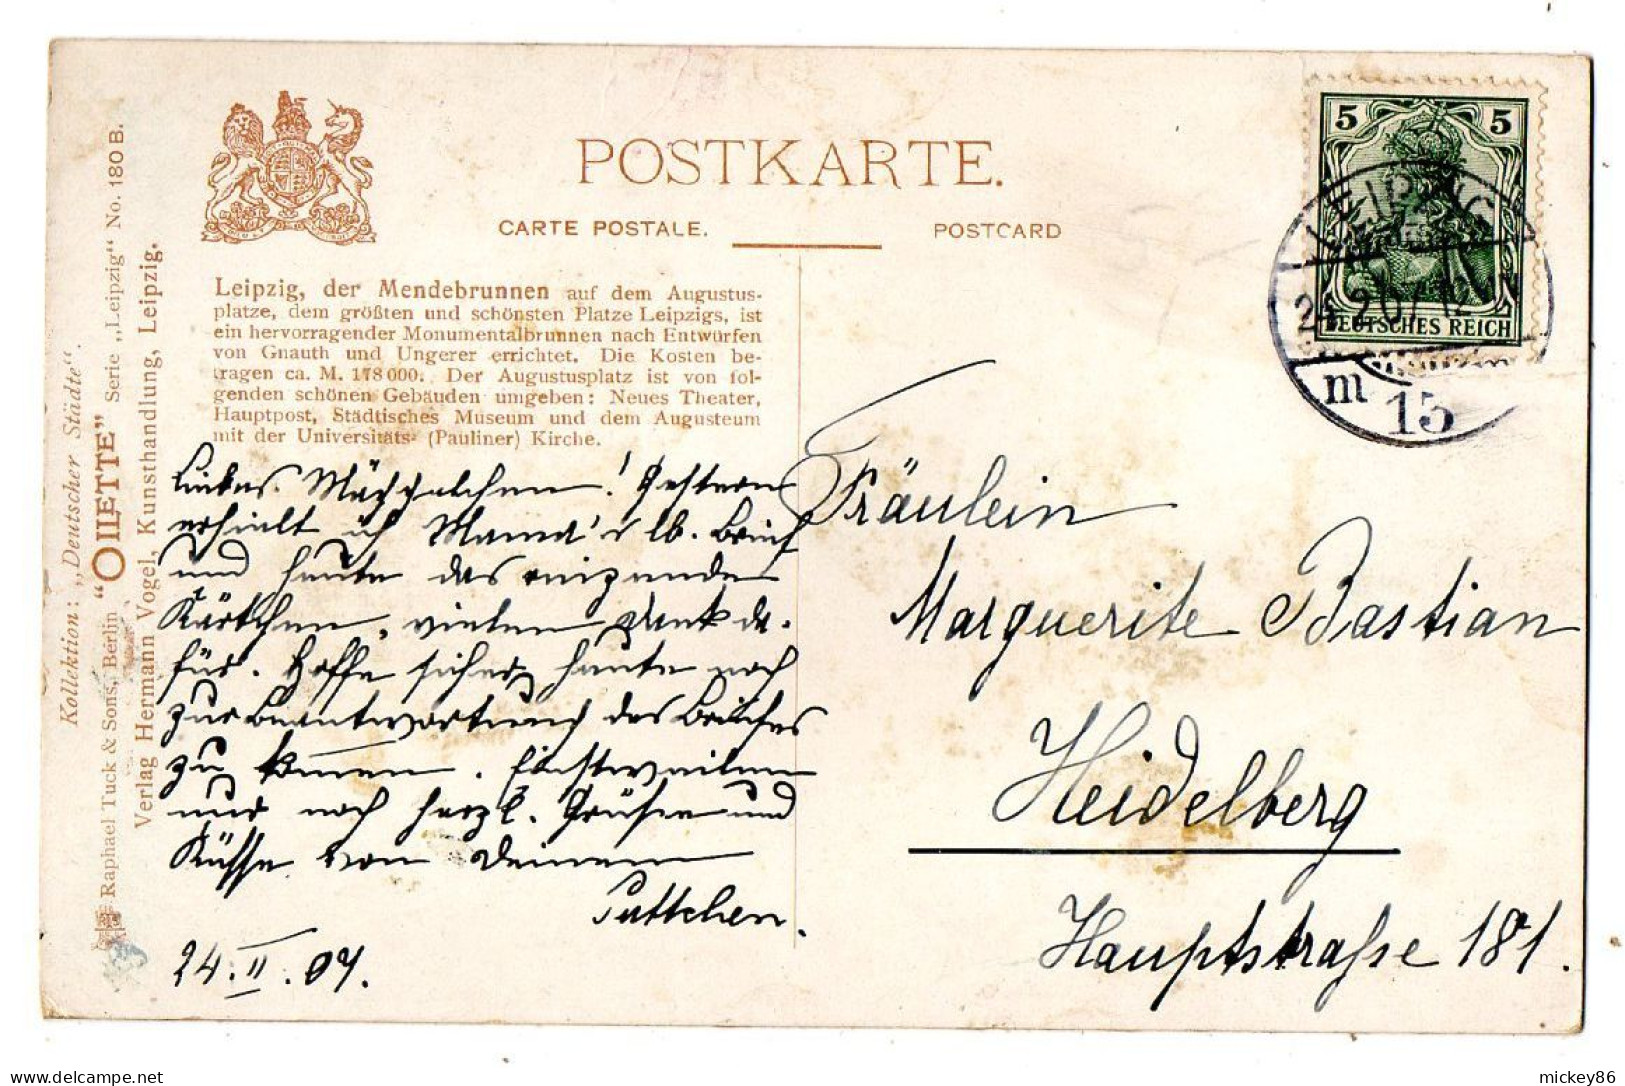 POSTKARTE.
CARTE POSTALE.
POSTCARD
Leipzig, der Mendebrunnen auf dem Augustus-
platze, dem größten und schönsten Platze Leipzigs, ist
ein hervorragender Monumentalbrunnen nach Entwürfen
von Gnauth und Ungerer errichtet. Die Kosten be-
tragen ca. M. 178000. Der Augustusplatz ist von fol-
genden schönen Gebäuden umgeben: Neues Theater,
Hauptpost, Städtisches Museum und dem Augusteum
mit der Universitäts- (Pauliner) Kirche.
Kollektion: „Deutscher Städte“.
Raphael Tuck & Sons, Berlin “OILETTE” Serie „Leipzig“ No. 180 B.
Verlag Hermann Vogel, Kunsthandlung, Leipzig.
5 5
DEUTSCHES REICH
LEIPZIG
m 15
Liebes! Gestern
erhielt ich Mama's lb. Brief
und heute das reizende
Kärtchen, vielen Dank da-
für. Hoffe sicher heute noch
zur Beantwortung des Briefes
zu kommen. Einstweilen
nur noch herzl. Grüße und
Küsse von Deinem
24.II.07.
Fräulein
Marguerite Bastian
Heidelberg
Hauptstraße 181.
mickey86